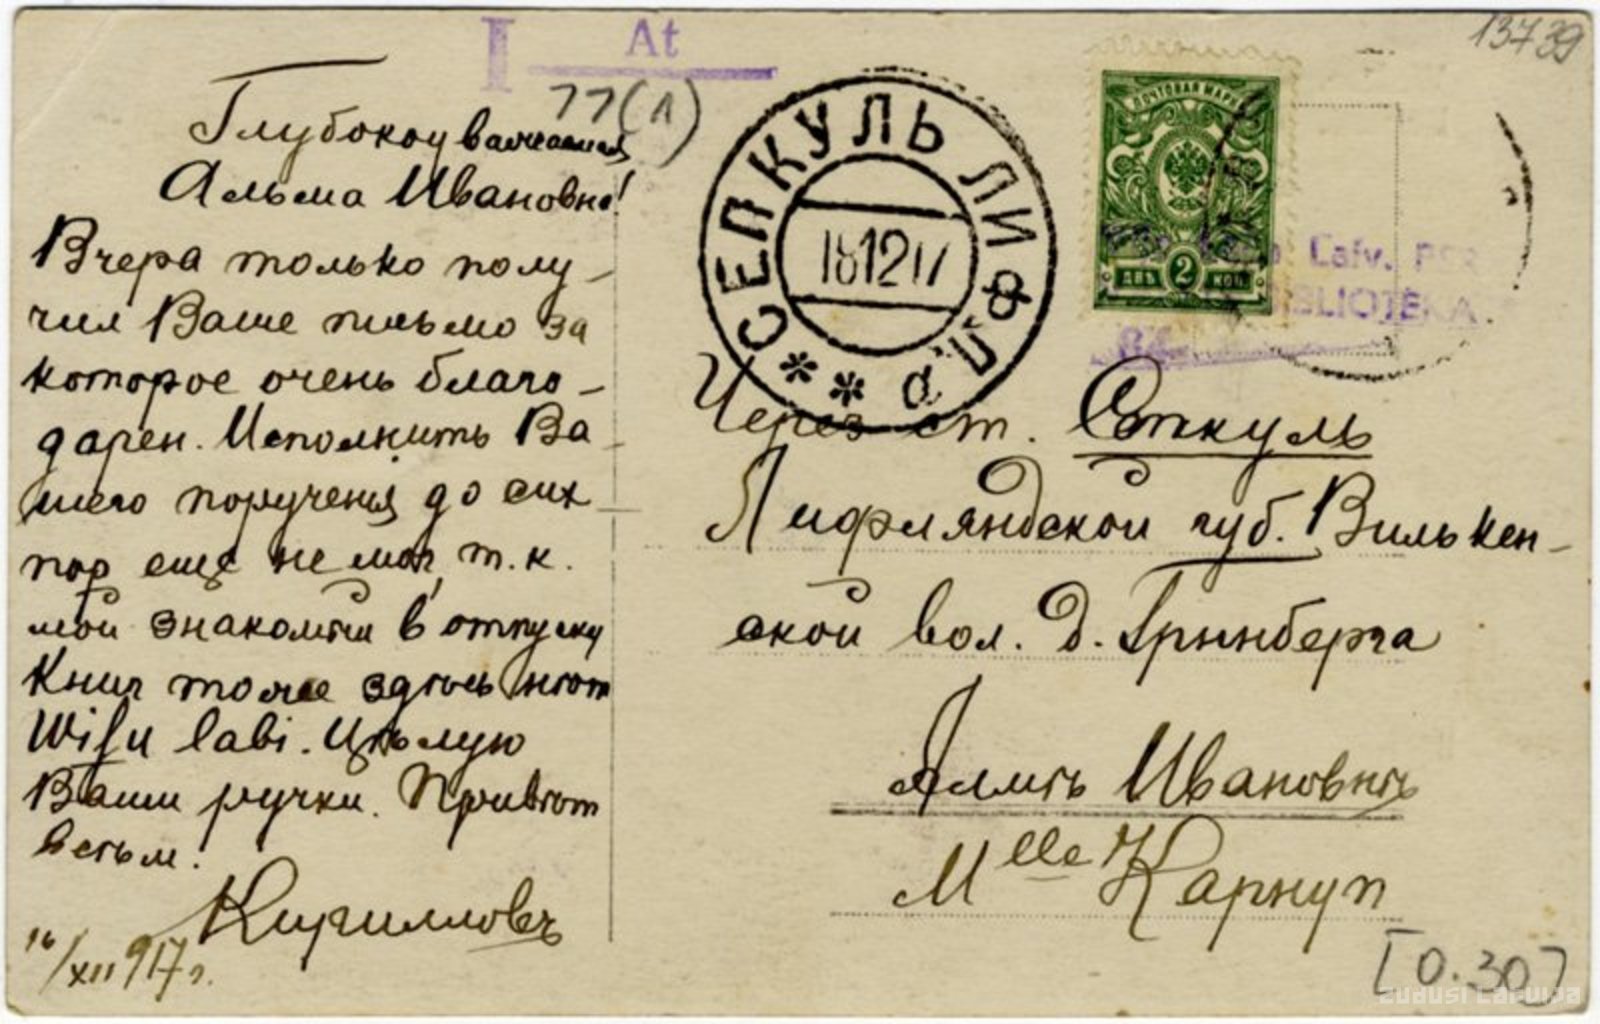 13739
I At
77(А)
Глубокоуважаемая
Альма Ивановна!
Вчера только полу-
чил Ваше письмо за
которое очень благо-
дарен. Исполнить Ва-
шего поручения до сих
пор еще не мог, т.к.
мой знакомый в отпуску
Книг тоже здѣсь нѣт
Wisu labi. Цѣлую
Ваши ручки. Привѣт
всѣм.
Кирилловъ
16/XII 917 г.
СЕПКУЛЬ ЛИФЛ. Г.
181217
ПОЧТОВАЯ МАРКА
ДВѢ 2 КОП
Latv. PSR
BIBLIOTEKA
Через ст. Сепкуль
Лифляндской губ. Вилькен-
ской вол. д. Грынберга
Алмѣ Ивановнѣ
Mlle Карнуп
[0.30]
zudusi Latvija